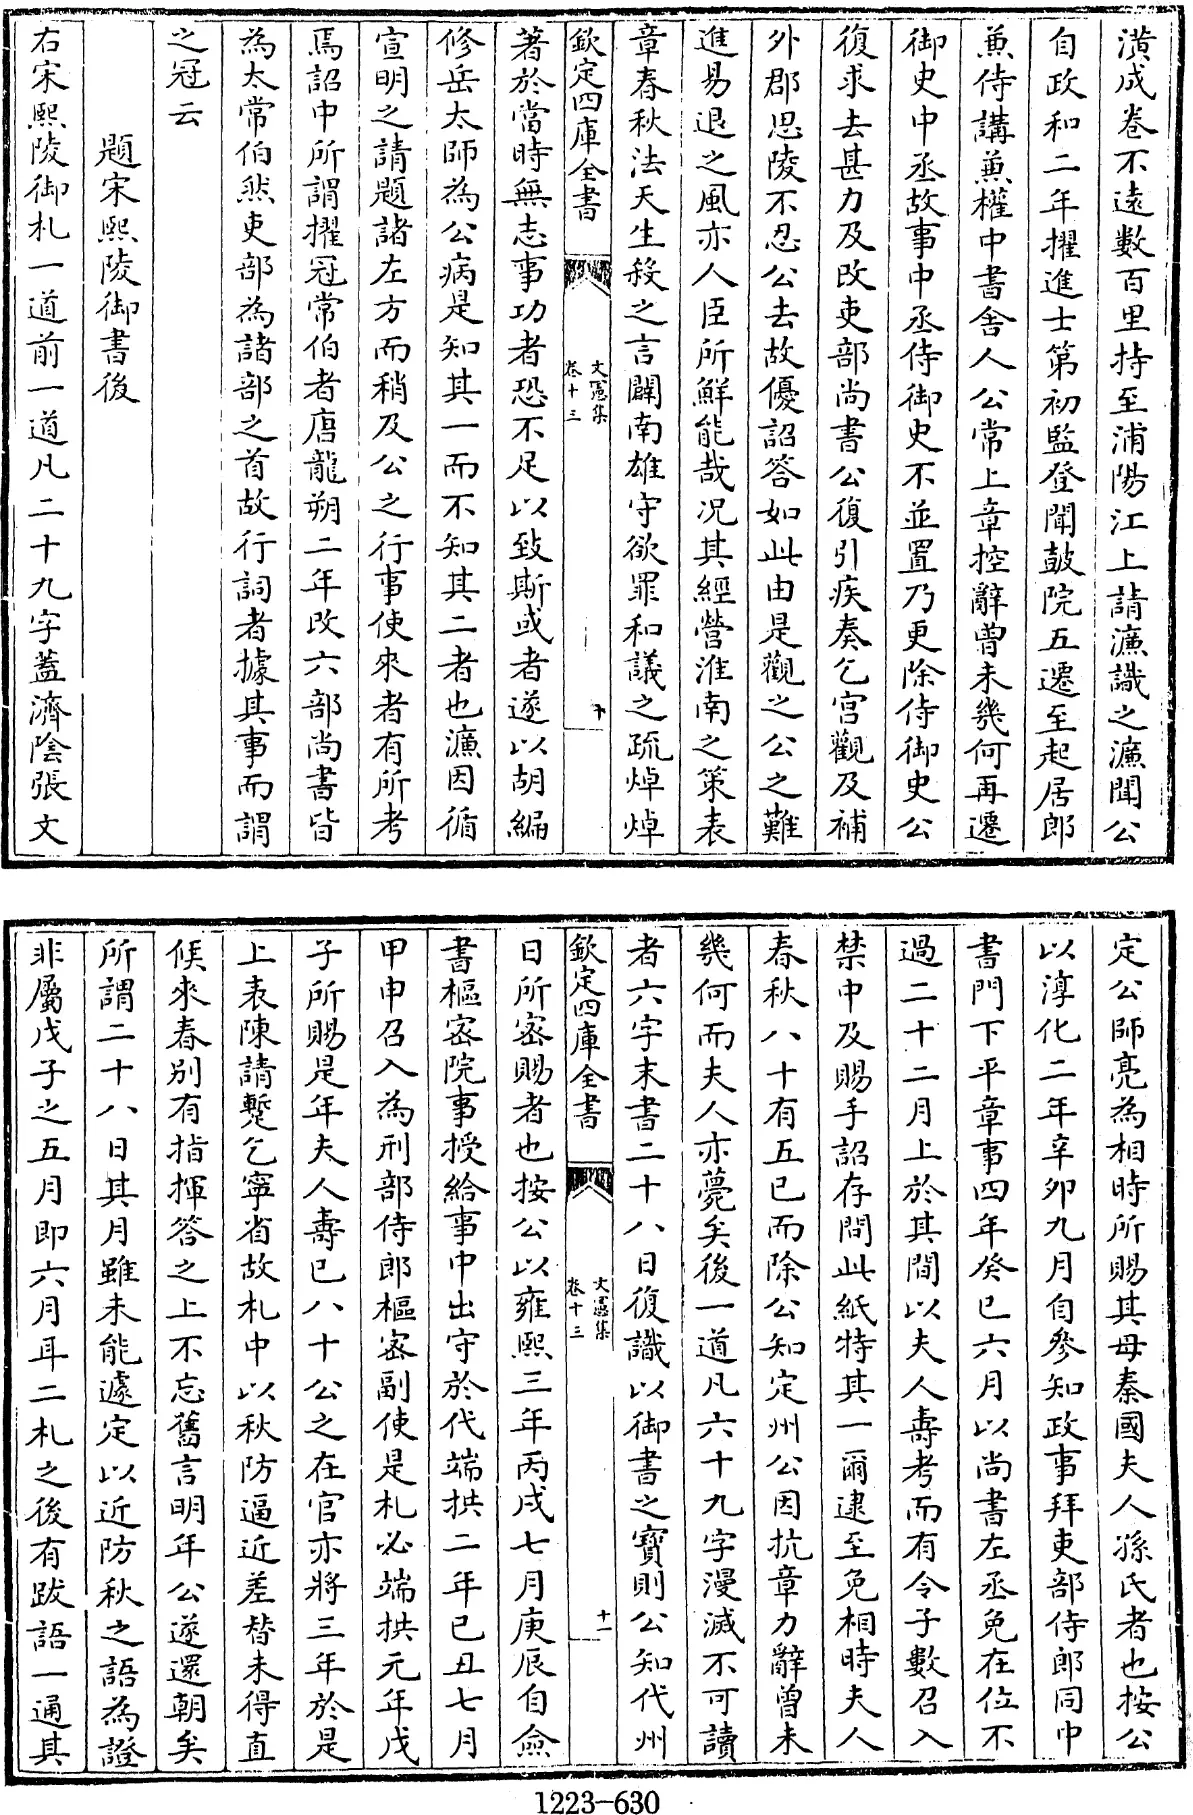 潢成卷不逺數百里持至浦陽江上請濂識之濂聞公
自政和二年擢進士第初監登聞鼓院五遷至起居郎
兼侍講兼權中書舍人公常上章控辭曽未幾何再遷
御史中丞故事中丞侍御史不並置乃更除侍御史公
復求去甚力及改吏部尚書公復引疾奏乞宫觀及補
外郡思陵不忍公去故優詔答如此由是觀之公之難
進易退之風亦人臣所鮮能哉况其經營淮南之策表
章春秋法天生殺之言闢南雄守欲罪和議之疏焯焯
欽定四庫全書
文憲集
卷十三
十
著於當時無志事功者恐不足以致斯或者遂以胡編
修岳太師為公病是知其一而不知其二者也濂因循
宣明之請題諸左方而稍及公之行事使來者有所考
焉詔中所謂擢冠常伯者唐龍朔二年改六部尚書皆
為太常伯然吏部為諸部之首故行詞者據其事而謂
之冠云
題宋熙陵御書後
右宋熙陵御札一道前一道凡二十九字蓋濟陰張文
定公師亮為相時所賜其母秦國夫人孫氏者也按公
以淳化二年辛卯九月自參知政事拜吏部侍郎同中
書門下平章事四年癸巳六月以尚書左丞免在位不
過二十二月上於其間以夫人壽考而有令子數召入
禁中及賜手詔存問此紙特其一爾逮至免相時夫人
春秋八十有五已而除公知定州公因抗章力辭曽未
幾何而夫人亦薨矣後一道凡六十九字漫滅不可讀
者六字末書二十八日復識以御書之寶則公知代州
欽定四庫全書
文憲集
卷十三
十一
日所密賜者也按公以雍熙三年丙戌七月庚辰自僉
書樞密院事授給事中出守於代端拱二年已丑七月
甲申召入為刑部侍郎樞密副使是札必端拱元年戊
子所賜是年夫人壽已八十公之在官亦將三年於是
上表陳請蹔乞寧省故札中以秋防逼近差替未得直
候來春别有指揮答之上不忘舊言明年公遂還朝矣
所謂二十八日其月雖未能遽定以近防秋之語為證
非屬戊子之五月即六月耳二札之後有跋語一通其
1223-630